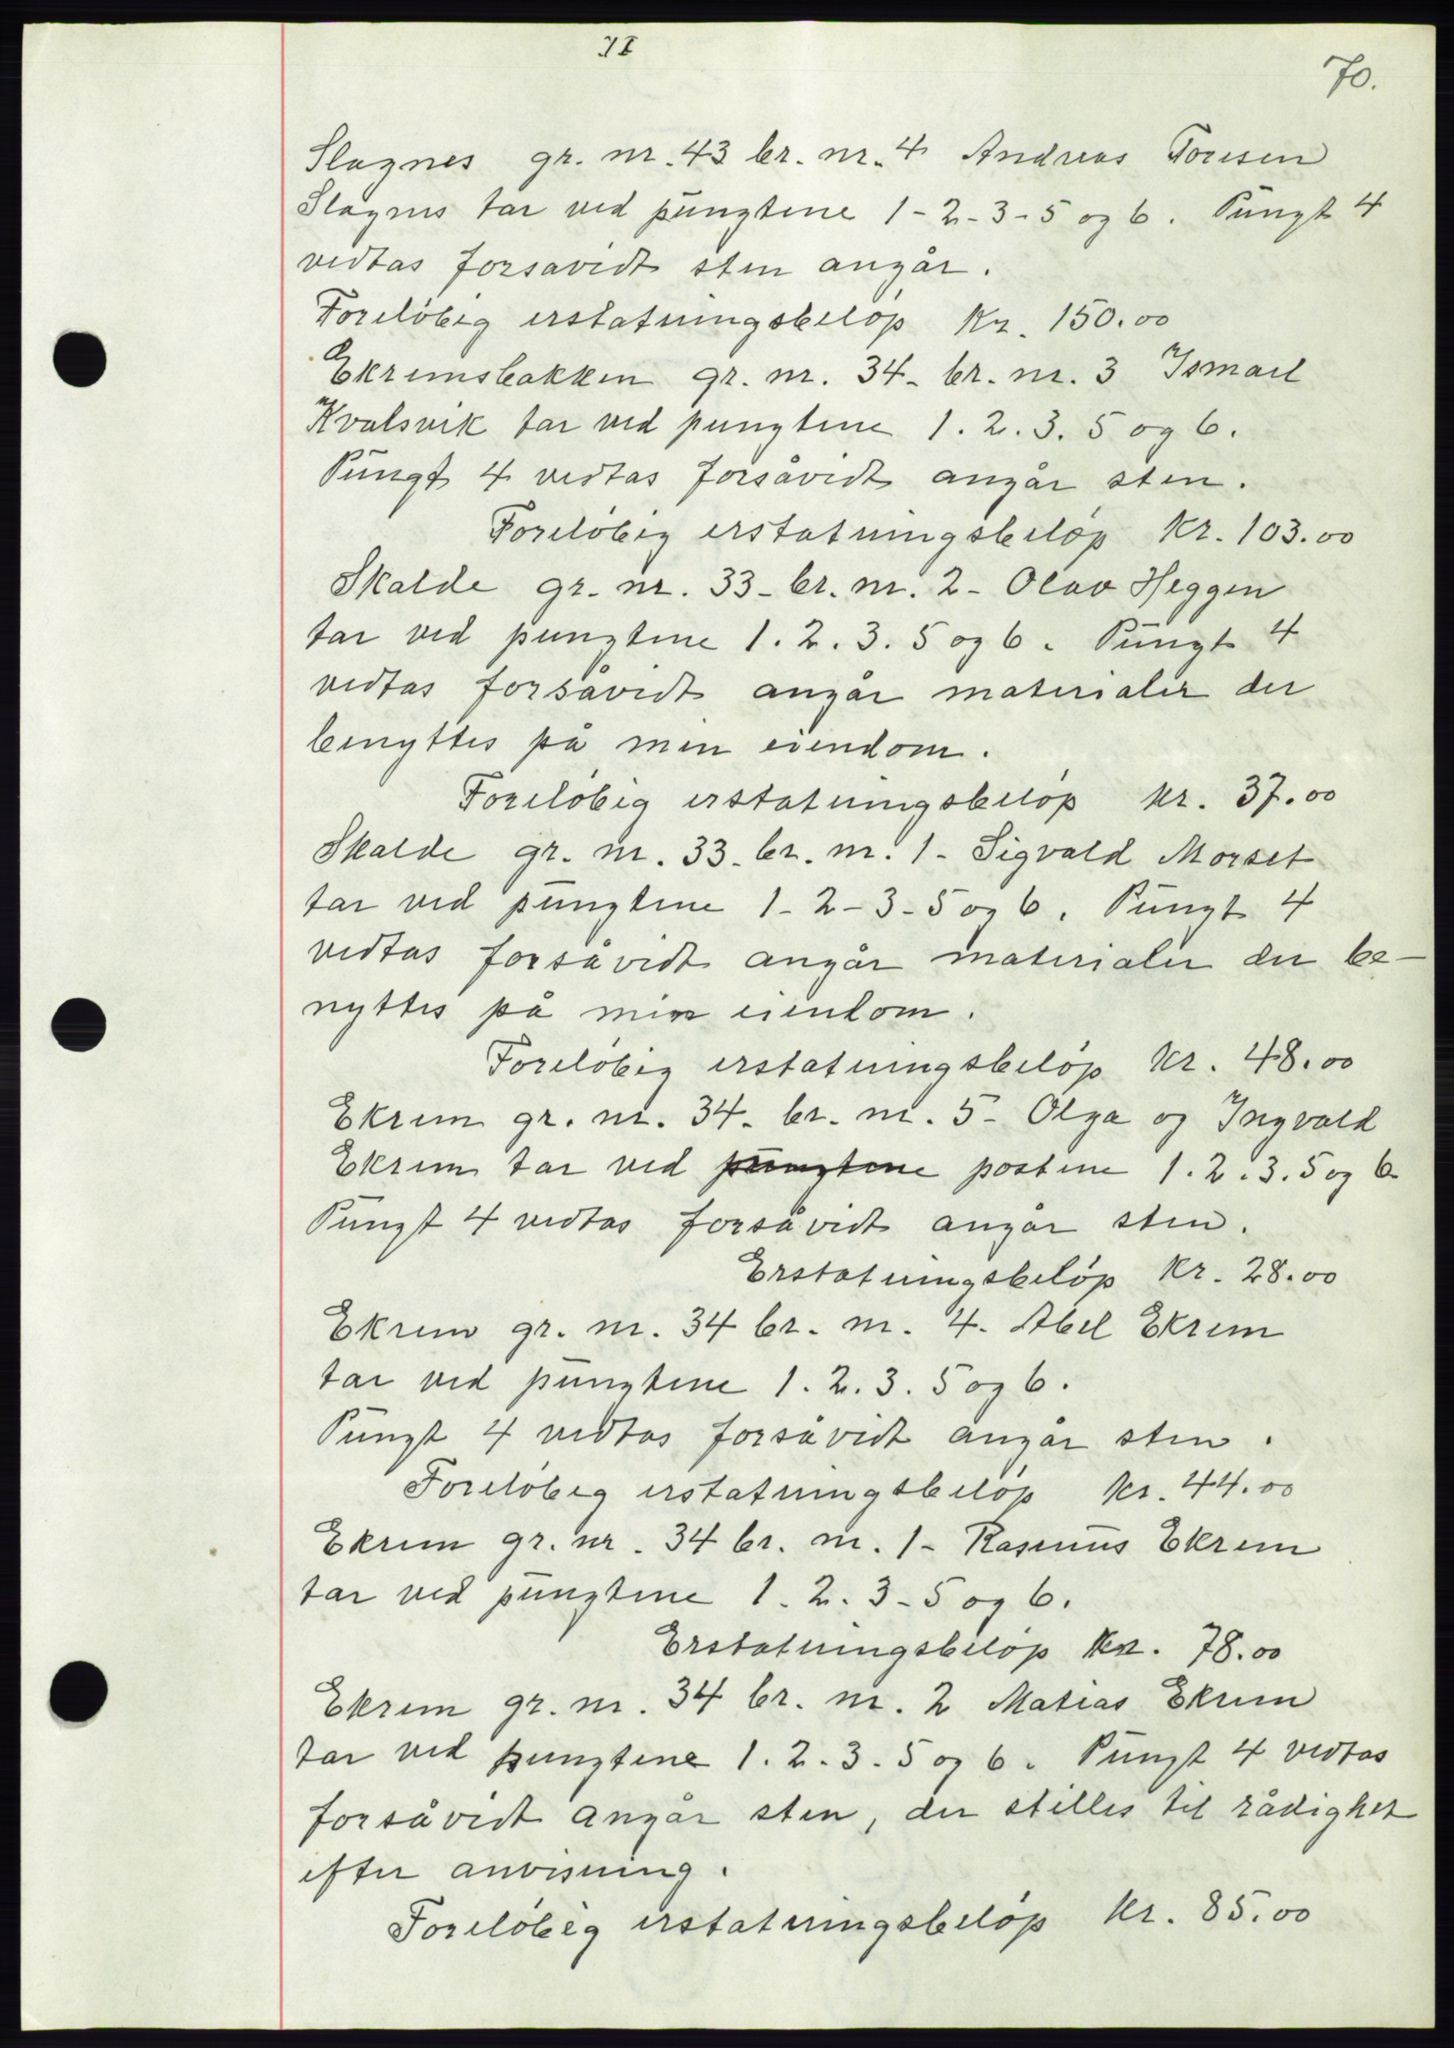 70.
Slagnes gr. nr. 43 br. nr. 4 Andreas Toresen
Slagnes tar ved pungtene 1-2-3-5 og 6. Pungt 4
vedtas forsavidt sten angår.
Foreløbig erstatningsbeløp Kr. 150.00
Ekremsbakken gr. nr. 34- br. nr. 3 Ismael
Kvalsvik tar ved pungtene 1. 2. 3. 5 og 6.
Pungt 4 vedtas forsåvidt angår sten.
Foreløbig erstatningsbeløp Kr. 103.00
Skalde gr. nr. 33- br. nr. 2- Olav Heggen
tar ved pungtene 1. 2. 3. 5 og 6. Pungt 4
vedtas forsåvidt angår materialer der
benyttes på min eiendom.
Foreløbig erstatningsbeløp kr. 37.00
Skalde gr. nr. 33- br. nr. 1- Sigvald Morset
tar ved pungtene 1-2-3-5 og 6. Pungt 4
vedtas forsåvidt angår materialer der be-
nyttes på min eiendom.
Foreløbig erstatningsbeløp kr. 48.00
Ekrem gr. nr. 34- br. nr. 5- Olga og Ingvald
Ekrem tar ved pungtene postene 1. 2. 3. 5 og 6
Pungt 4 vedtas forsåvidt angår sten.
Erstatningsbeløp Kr. 28.00
Ekrem gr. nr. 34 br. nr. 4. Abel Ekrem
tar ved pungtene 1. 2. 3. 5 og 6.
Pungt 4 vedtas forsåvidt angår sten.
Foreløbig erstatningsbeløp kr. 44.00
Ekrem gr. nr. 34 br. nr. 1- Rasmus Ekrem
tar ved pungtene 1. 2. 3-5 og 6.
Erstatningsbeløp Kr. 78.00
Ekrem gr. nr. 34 br. nr. 2 Matias Ekrem
tar ved pungtene 1. 2. 3. 5 og 6. Pungt 4 vedtas
forsåvidt angår sten, der stilles til rådighet
efter anvisning.
Foreløbig erstatningsbeløp kr. 85.00